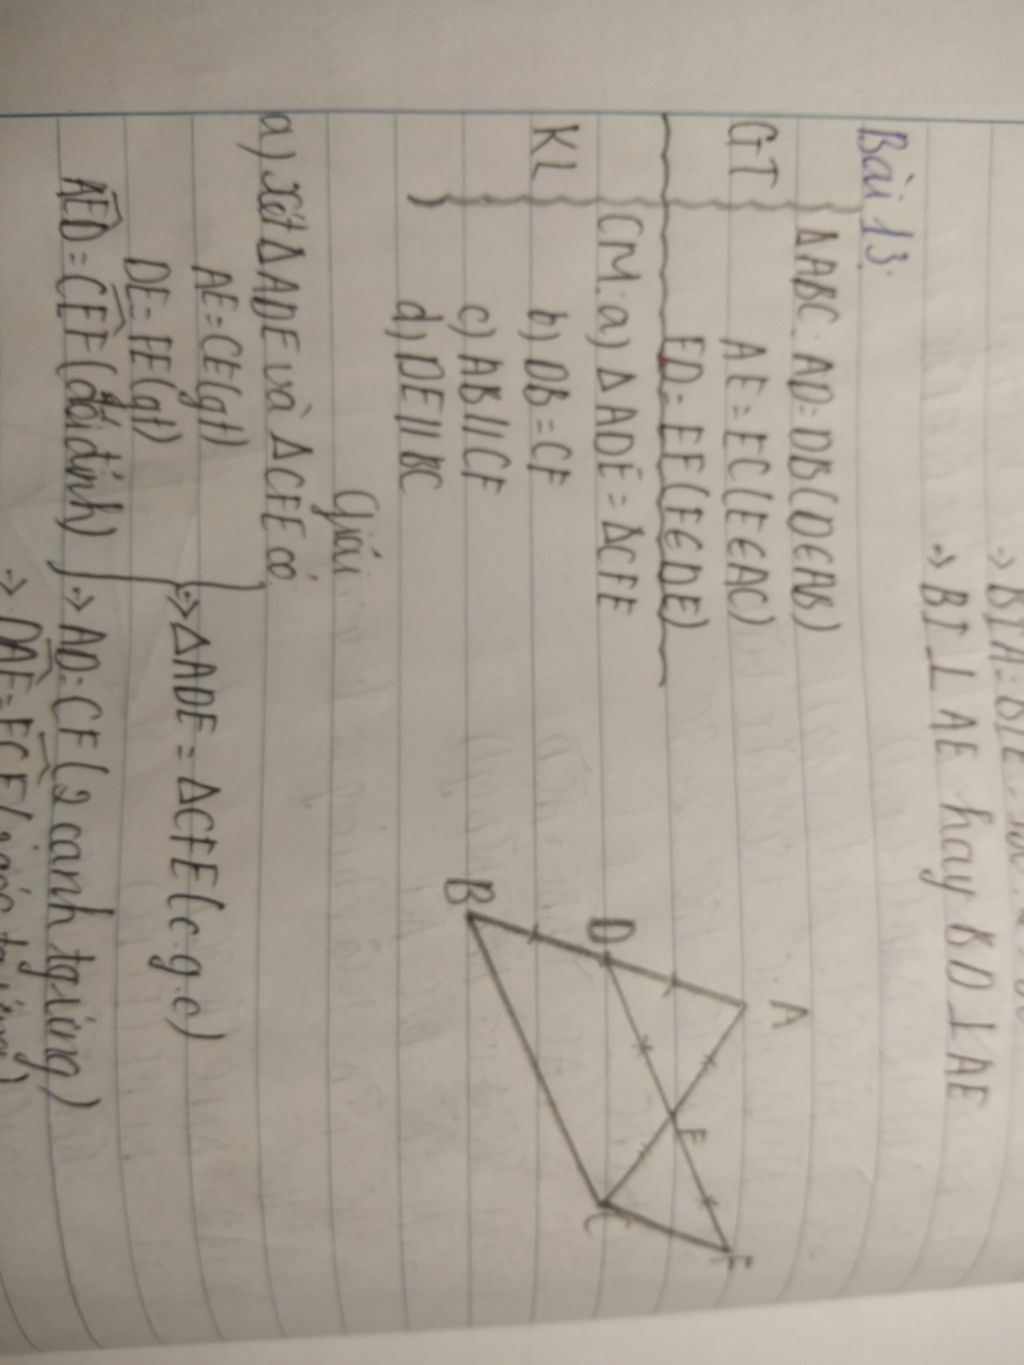 → BI ⊥ AE hay BD ⊥ AE
Bài 13:
GT
ΔABC: AD = DB (D ∈ AB)
AE = EC (E ∈ AC)
ED = EF (F ∈ DE)
KL
CM: a) ΔADE = ΔCFE
b) DB = CF
c) AB // CF
d) DE // BC
A
D
E
F
B
C
Giải
a) Xét ΔADE và ΔCFE có
AE = CE (gt)
DE = FE (gt)
AED = CEF (đối đỉnh)
→ ΔADE = ΔCFE (c.g.c)
→ AD = CF (2 cạnh tg ứng)